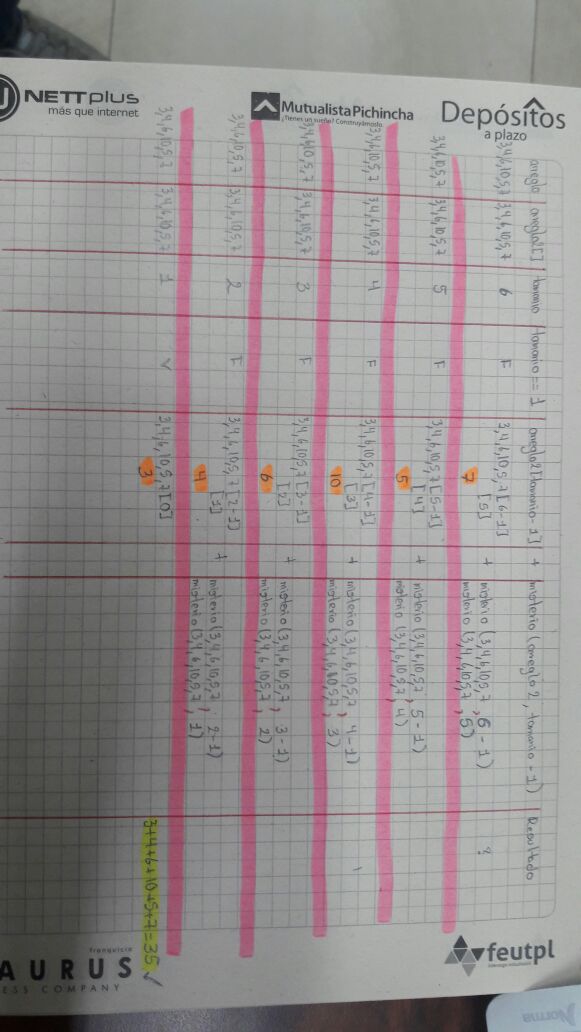 NETTplus
más que internet
MutualistaPichincha
¿Tienes un sueño? Construyámoslo
Depósitos
a plazo
arreglo arreglo2[] tamanio tamanio == 1 arreglo2[tamanio-1] + misterio (arreglo2, tamanio-1) Resultado
3,4,6,10,5,7 3,4,6,10,5,7 6 F 3,4,6,10,5,7[6-1] + misterio (3,4,6,10,5,7, 6-1) ?
[5] misterio (3,4,6,10,5,7, 5)
7
3,4,6,10,5,7 3,4,6,10,5,7 5 F 3,4,6,10,5,7[5-1] + misterio (3,4,6,10,5,7, 5-1)
[4] misterio (3,4,6,10,5,7, 4)
5
3,4,6,10,5,7 3,4,6,10,5,7 4 F 3,4,6,10,5,7[4-1] + misterio (3,4,6,10,5,7, 4-1)
[3] misterio (3,4,6,10,5,7, 3)
10
3,4,6,10,5,7 3,4,6,10,5,7 3 F 3,4,6,10,5,7[3-1] + misterio (3,4,6,10,5,7, 3-1)
[2] misterio (3,4,6,10,5,7, 2)
6
3,4,6,10,5,7 3,4,6,10,5,7 2 F 3,4,6,10,5,7[2-1] + misterio (3,4,6,10,5,7, 2-1)
[1] misterio (3,4,6,10,5,7, 1)
4
3,4,6,10,5,7 3,4,6,10,5,7 1 V 3,4,6,10,5,7[0]
3 3+4+6+10+5+7=35 ✓
franquicia
AURUS
ESS COMPANY
feutpl
Norma